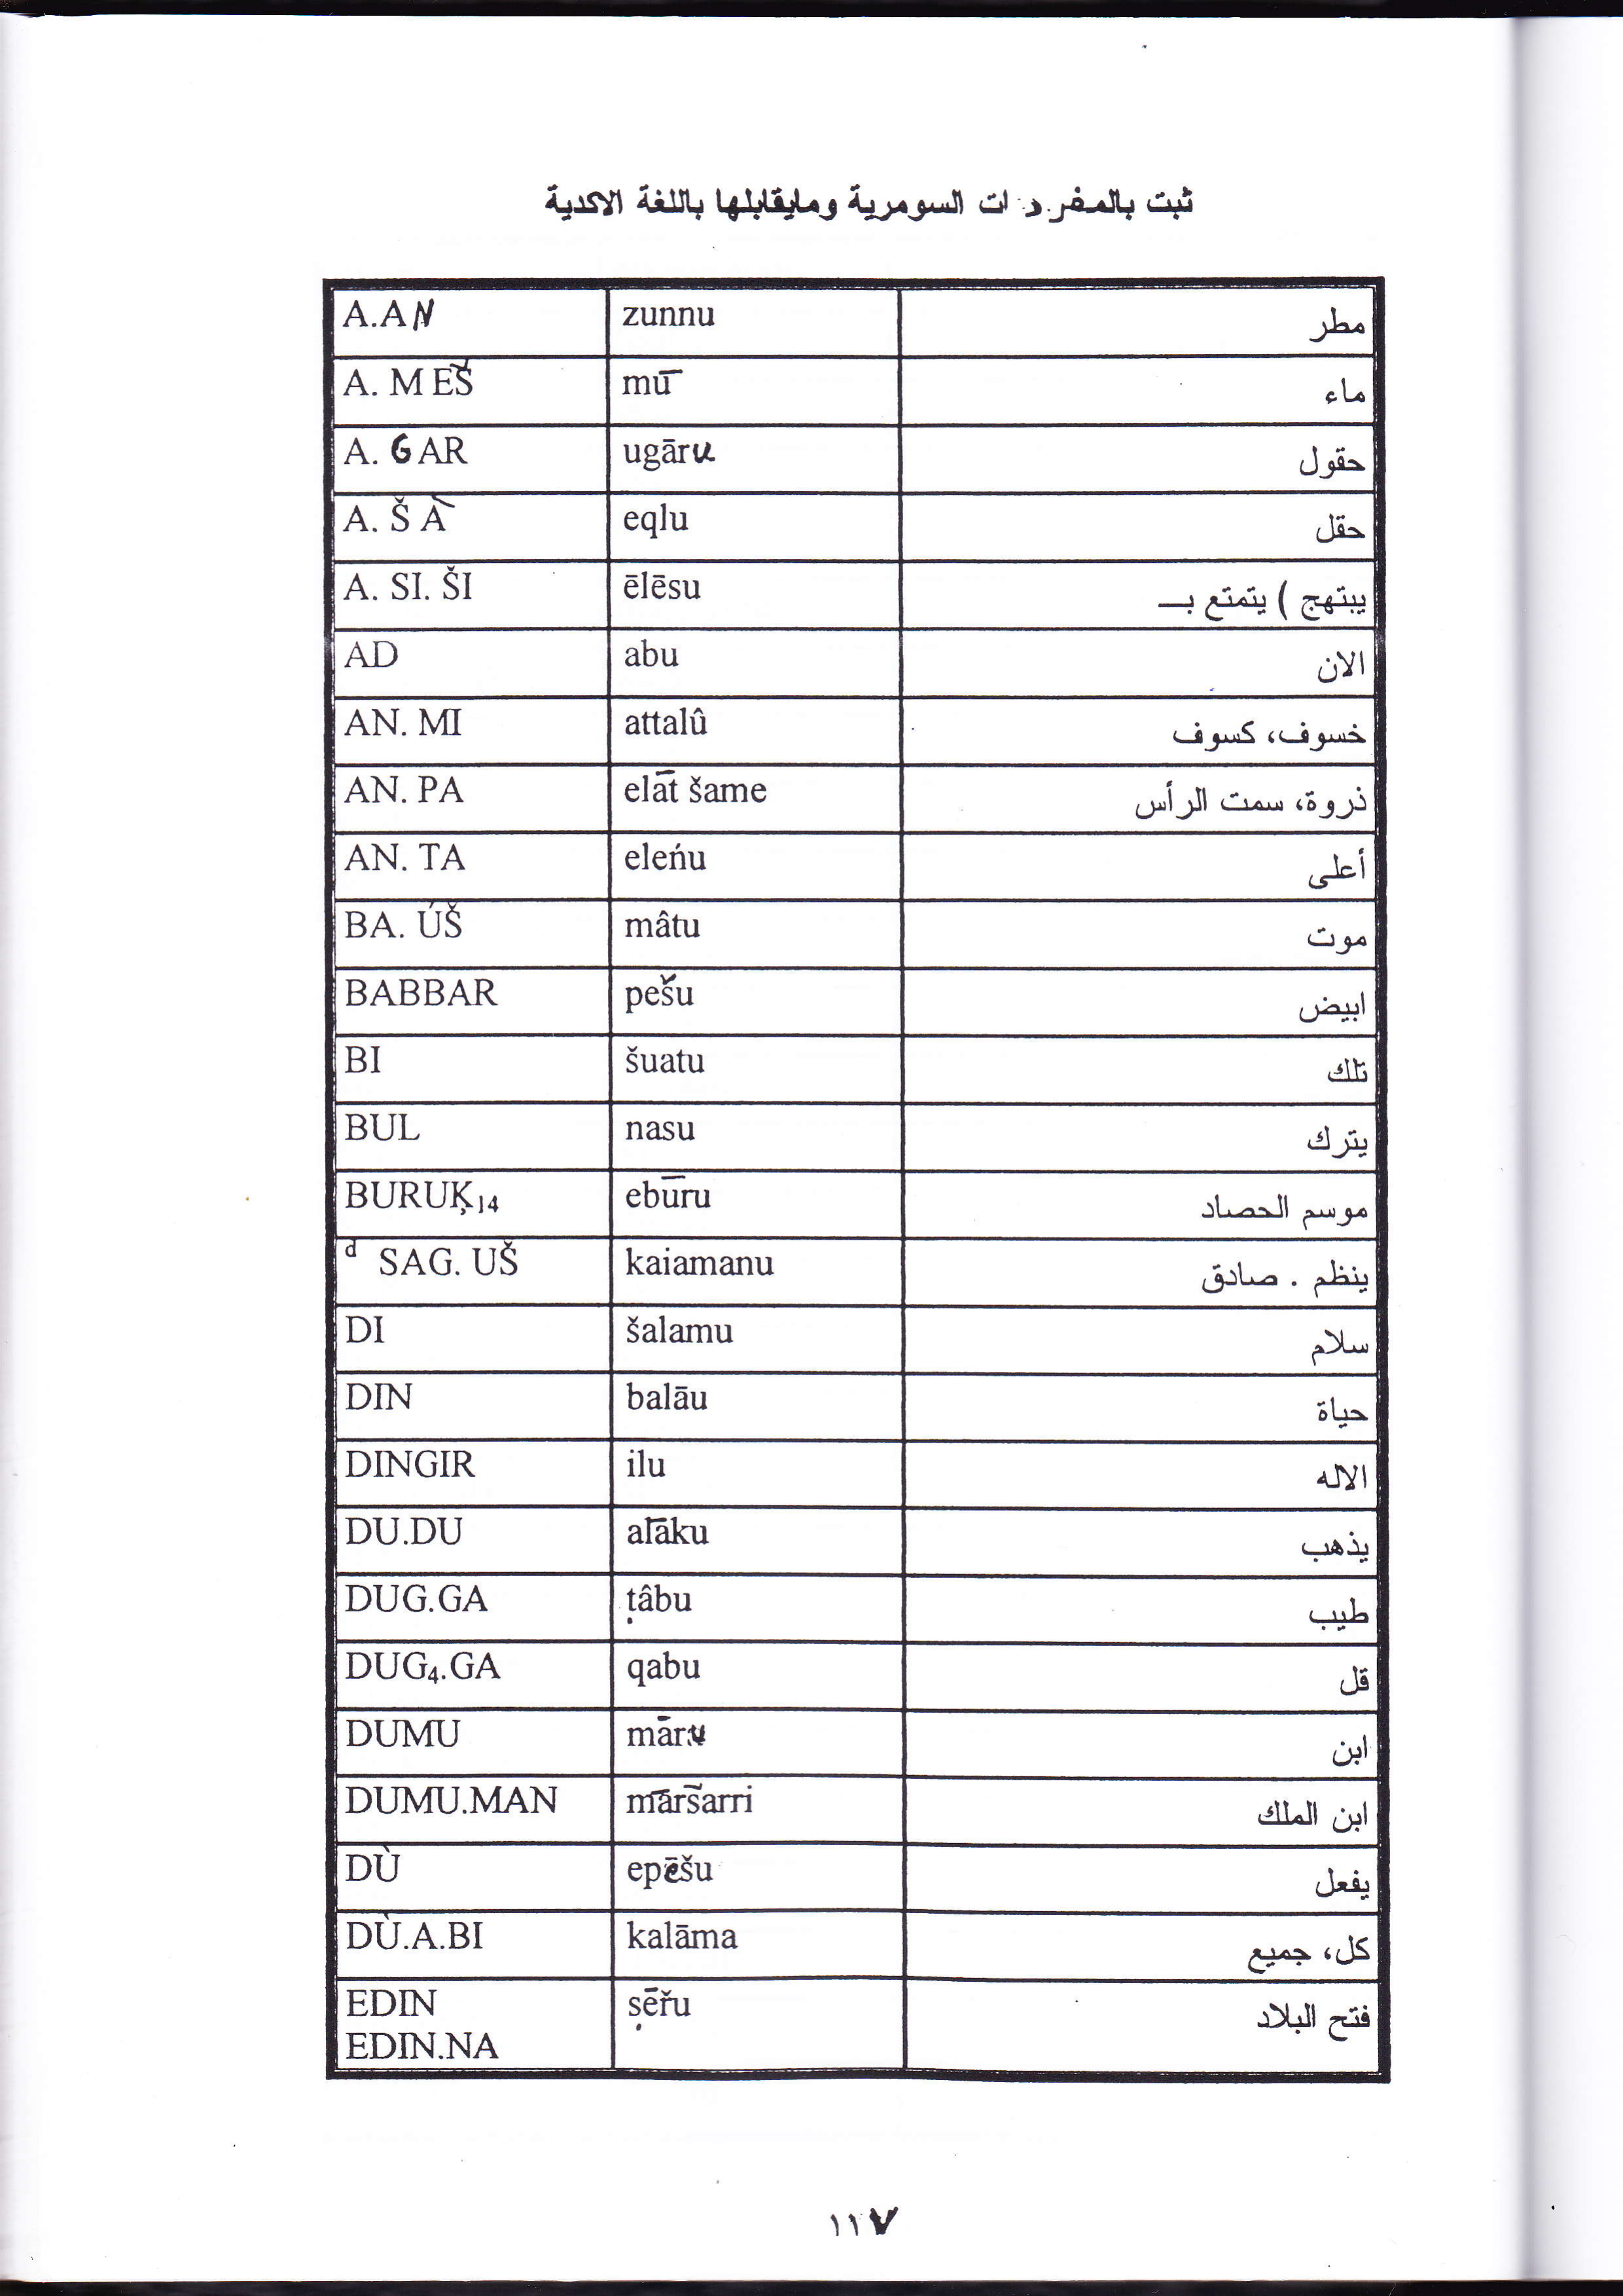 ثبت بالمفردات السومرية ومايقابلها باللغة الاكدية
A.AN zunnu مطر
A. MEŠ mū ماء
A. GAR ugāru حقول
A. ŠÀ eqlu حقل
A. SI. ŠI ēlēsu يبتهج ) يتمتع بـ
AD abu الان
AN. MI attalû خسوف، كسوف
AN. PA elāt šame ذروة، سمت الرأس
AN. TA eleńu أعلى
BA. ÚŠ mâtu موت
BABBAR pešu ابيض
BI šuatu تلك
BUL nasu يترك
BURUḲ₁₄ ebūru موسم الحصاد
ᵈ SAG. UŠ kaiamanu ينظم . صادق
DI šalamu سلام
DIN balāu حياة
DINGIR ilu الاله
DU.DU alāku يذهب
DUG.GA ṭâbu طيب
DUG₄.GA qabu قل
DUMU māru ابن
DUMU.MAN māršarri ابن الملك
DÙ epēšu يفعل
DÙ.A.BI kalāma كل، جميع
EDIN ṣēřu فتح البلاد
EDIN.NA
١١٧